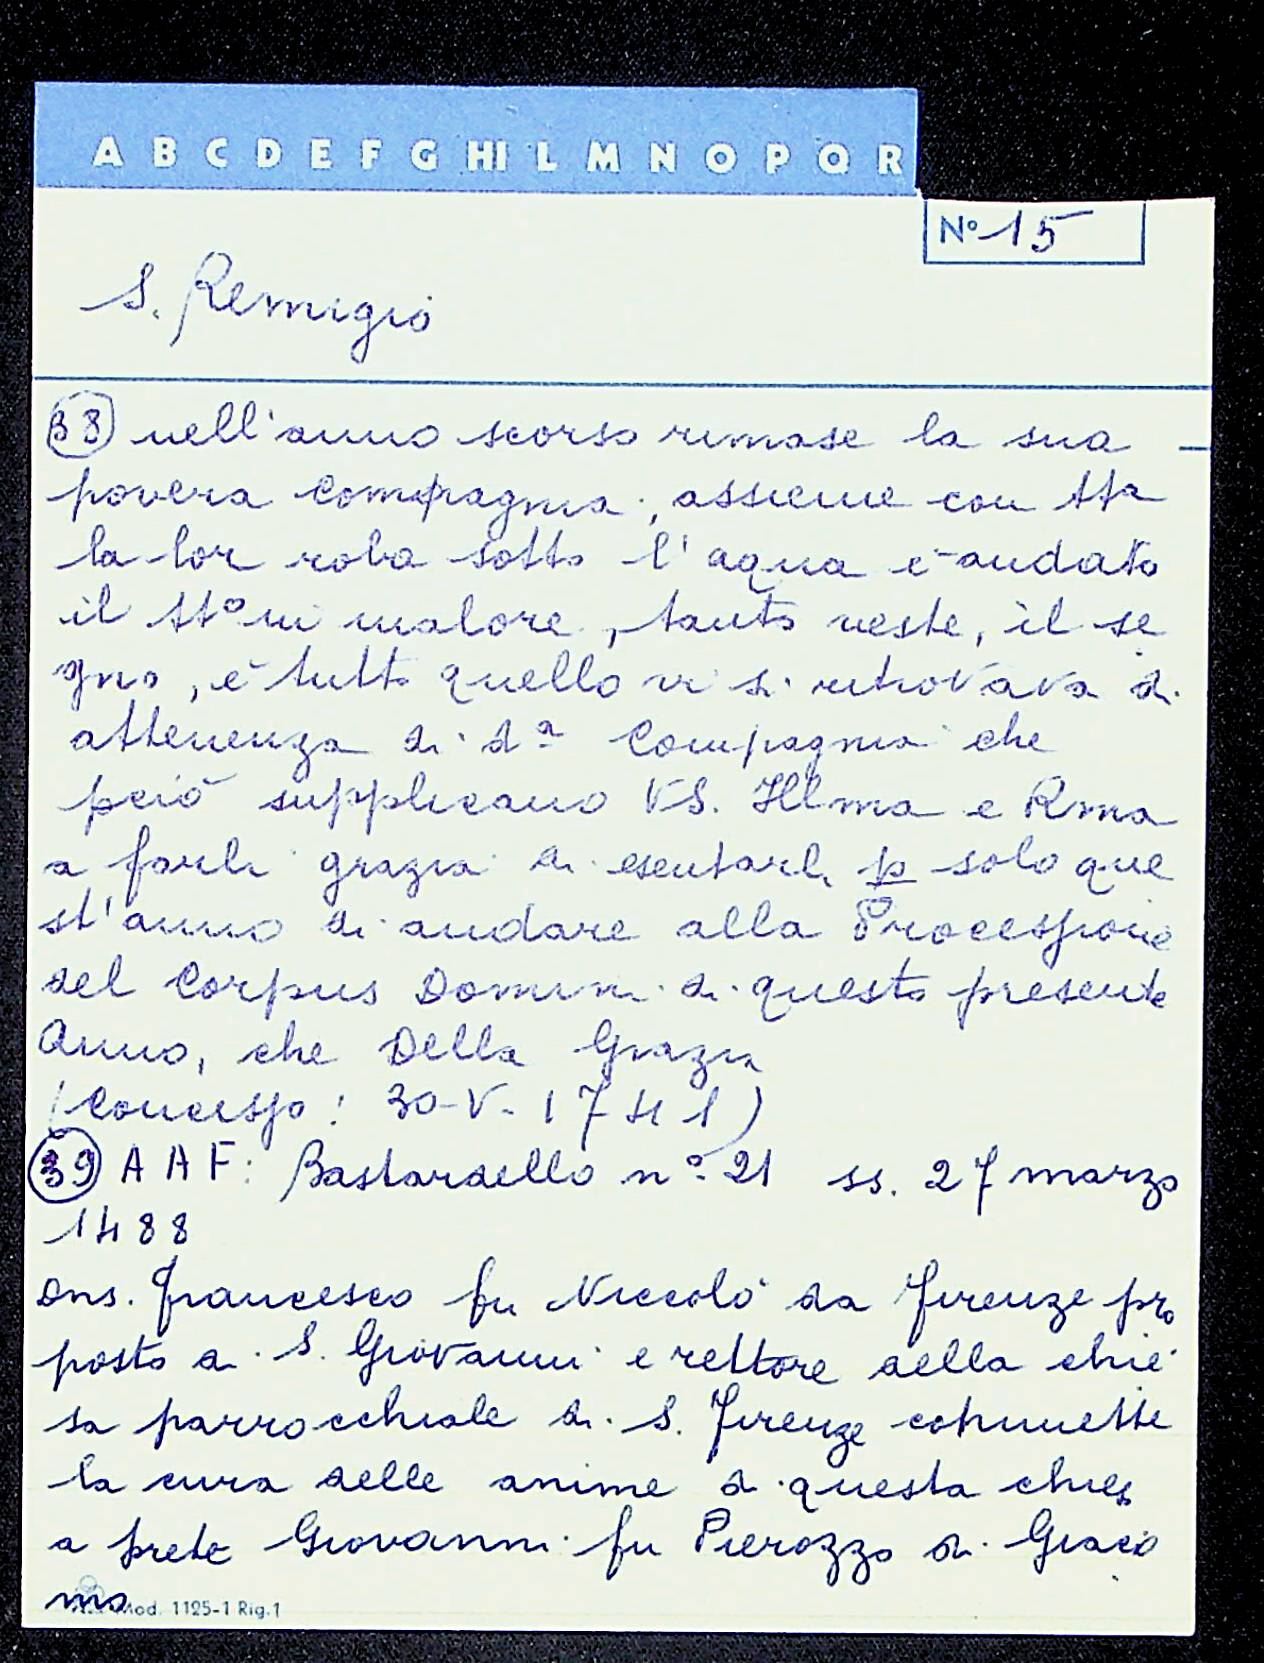 A B C D E F G HI L M N O P Q R
N° 15
S. Remigio
38 nell'anno scorso rimase la sua
povera Compagnia, assieme con tta
la lor roba sotto l'aqua è andato
il tt° in malore, tanto veste, il se
gno, e tutto quello vi si ritrovava di
attenenza di da Compagnia che
pciò supplicano VS. Illma e Rma
a farli grazia di esentarli p solo que
st'anno di andare alla Processione
del Corpus Domini di questo presente
Anno, che Della Grazia
(Concesso: 30-V-1741)
39 AAF: Bastardello n° 21 ss. 27 marzo
1488
Dns. Francesco fu Niccolò da Firenze pro
posto di S. Giovanni e rettore della chie
sa parrocchiale di S. Firenze commette
la cura delle anime di questa chiesa
a prete Giovanni fu Pierozzo di Giaco
mo
Mod. 1125-1 Rig.1